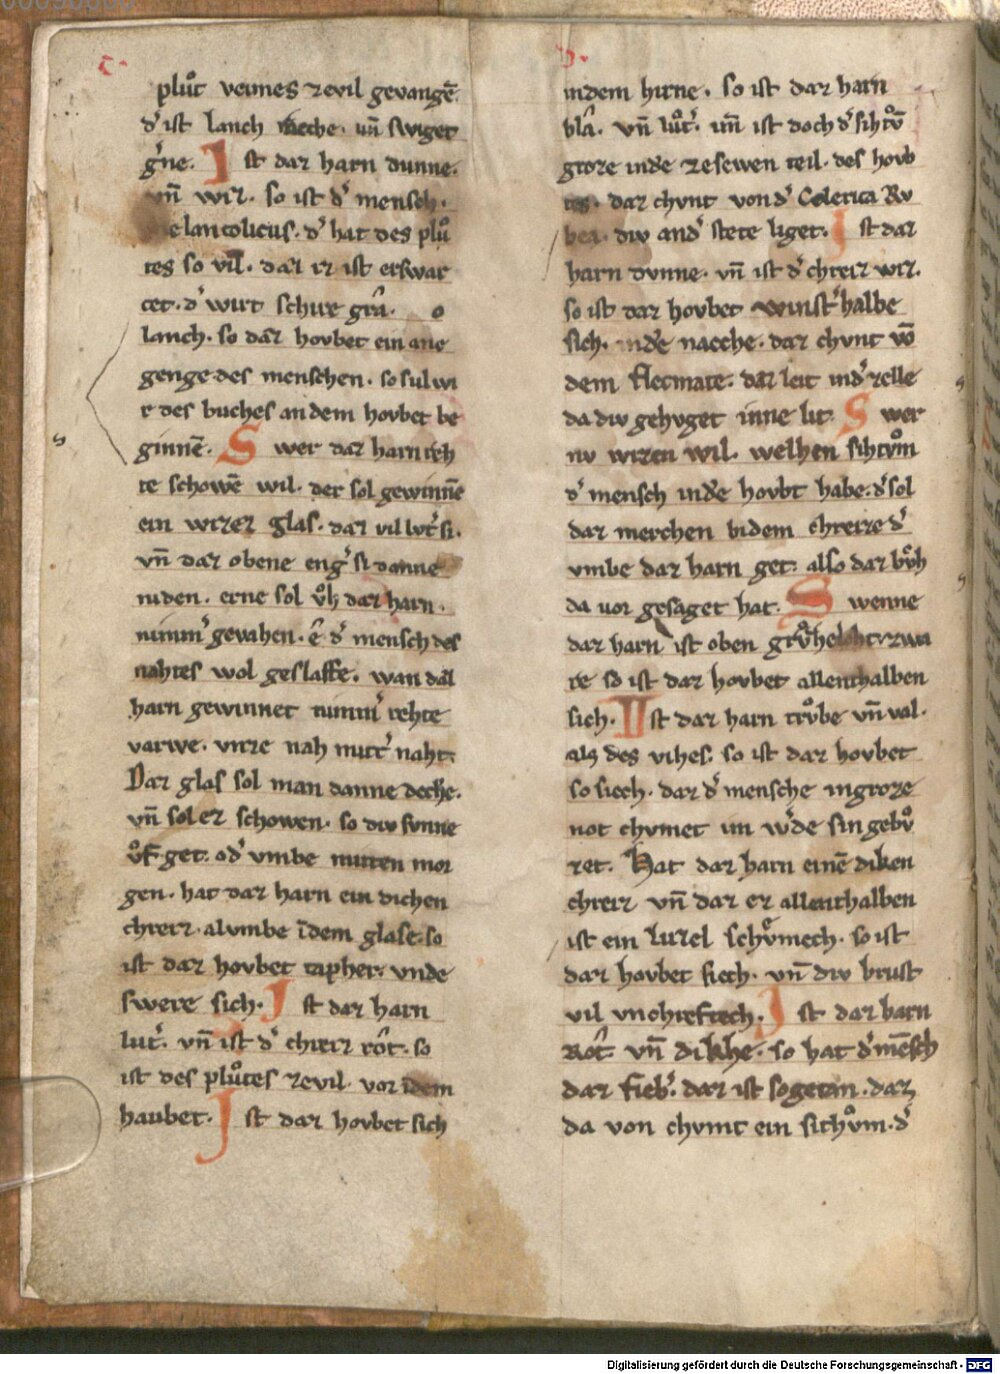 c·
pluͦt vennes zevil gevangē.
dˀ ist lanch ræche. uñ swiget
gˀne. Ist daz harn dunne.
vñ wiz. so ist dˀ mensch.
melancolicus. dˀ hat des pluͦ
tes so vil. daz iz ist erswar
cet. dˀ wirt schire gra.
lanch. so daz hovbet ein ane
genge des menschen. so sul wi
r des buches an dem hovbet be
ginnē. Swer daz harn reh
te schowē wil. der sol gewinnē
ein wizez glas. daz vil lvtˀ si.
vñ daz obene engˀ si danne
niden. erne sol vͦh daz harn.
nimmˀ gevahen. ê dˀ mensch des
nahtes wol geslaffe. wan daz
harn gewinnet nimmˀ rehte
varwe. vnze nah mittˀ naht.
Daz glas sol man danne deche.
vñ sol ez schowen. so div svnne
vͦf get. odˀ vmbe mitten mor
gen. hat daz harn ein dichen
chreiz. alvmbe īdem glase. so
ist daz hovbet tapher. vnde
swere sich. Ist daz harn
lutˀ. vñ ist dˀ chreiz rôt. so
ist des pluͦtes zevil. vor īdem
haubet. Ist daz hovbet sich
indem hirne. so ist daz harn
blâ. vñ luͦtˀ. uñ ist doch dˀ sihtvͦ
groze indˀe zesewen teil. des hovb
tes. daz chvnt von dˀ Colerica Rv
bea. div andˀ stete liget. Ist daz
harn dvnne. vñ ist dˀ chreiz wiz.
so ist daz hovbet winstˀhalbe
sich. indˀe naeche. daz chvnt vō
dem flecmate. daz leit indˀ zelle
da div gehvget inne lit. Swer
nv wizen wil. welhen sihtvͦm
dˀ mensch indˀe hovbt habe. dˀ sol
daz merchen bidem chreize dˀ
vmbe daz harn get. also daz bvͦh
da vor gesaget hat. Swenne
daz harn ist oben
te so ist daz hovbet allenthalben
sich. Ist daz harn trvͦbe vñ val.
als des vihes. so ist daz hovbet
so siech. daz dˀ mensche ingroze
not chvmet im wˀde sin gebvͦ
zet. Hat daz harn einē diken
chreiz vñ daz ez allenthalben
ist ein luzel schvͦmech. so ist
daz hovbet siech. vñ div brust
vil vnchreftech. Ist daz harn
Rôt. vñ dikhe. so hat dˀ mēsch
daz fiebˀ. daz ist sogetan. daz
da von chvmt ein sichvͦm. dˀ
Digitalisierung gefördert durch die Deutsche Forschungsgemeinschaft - DFG